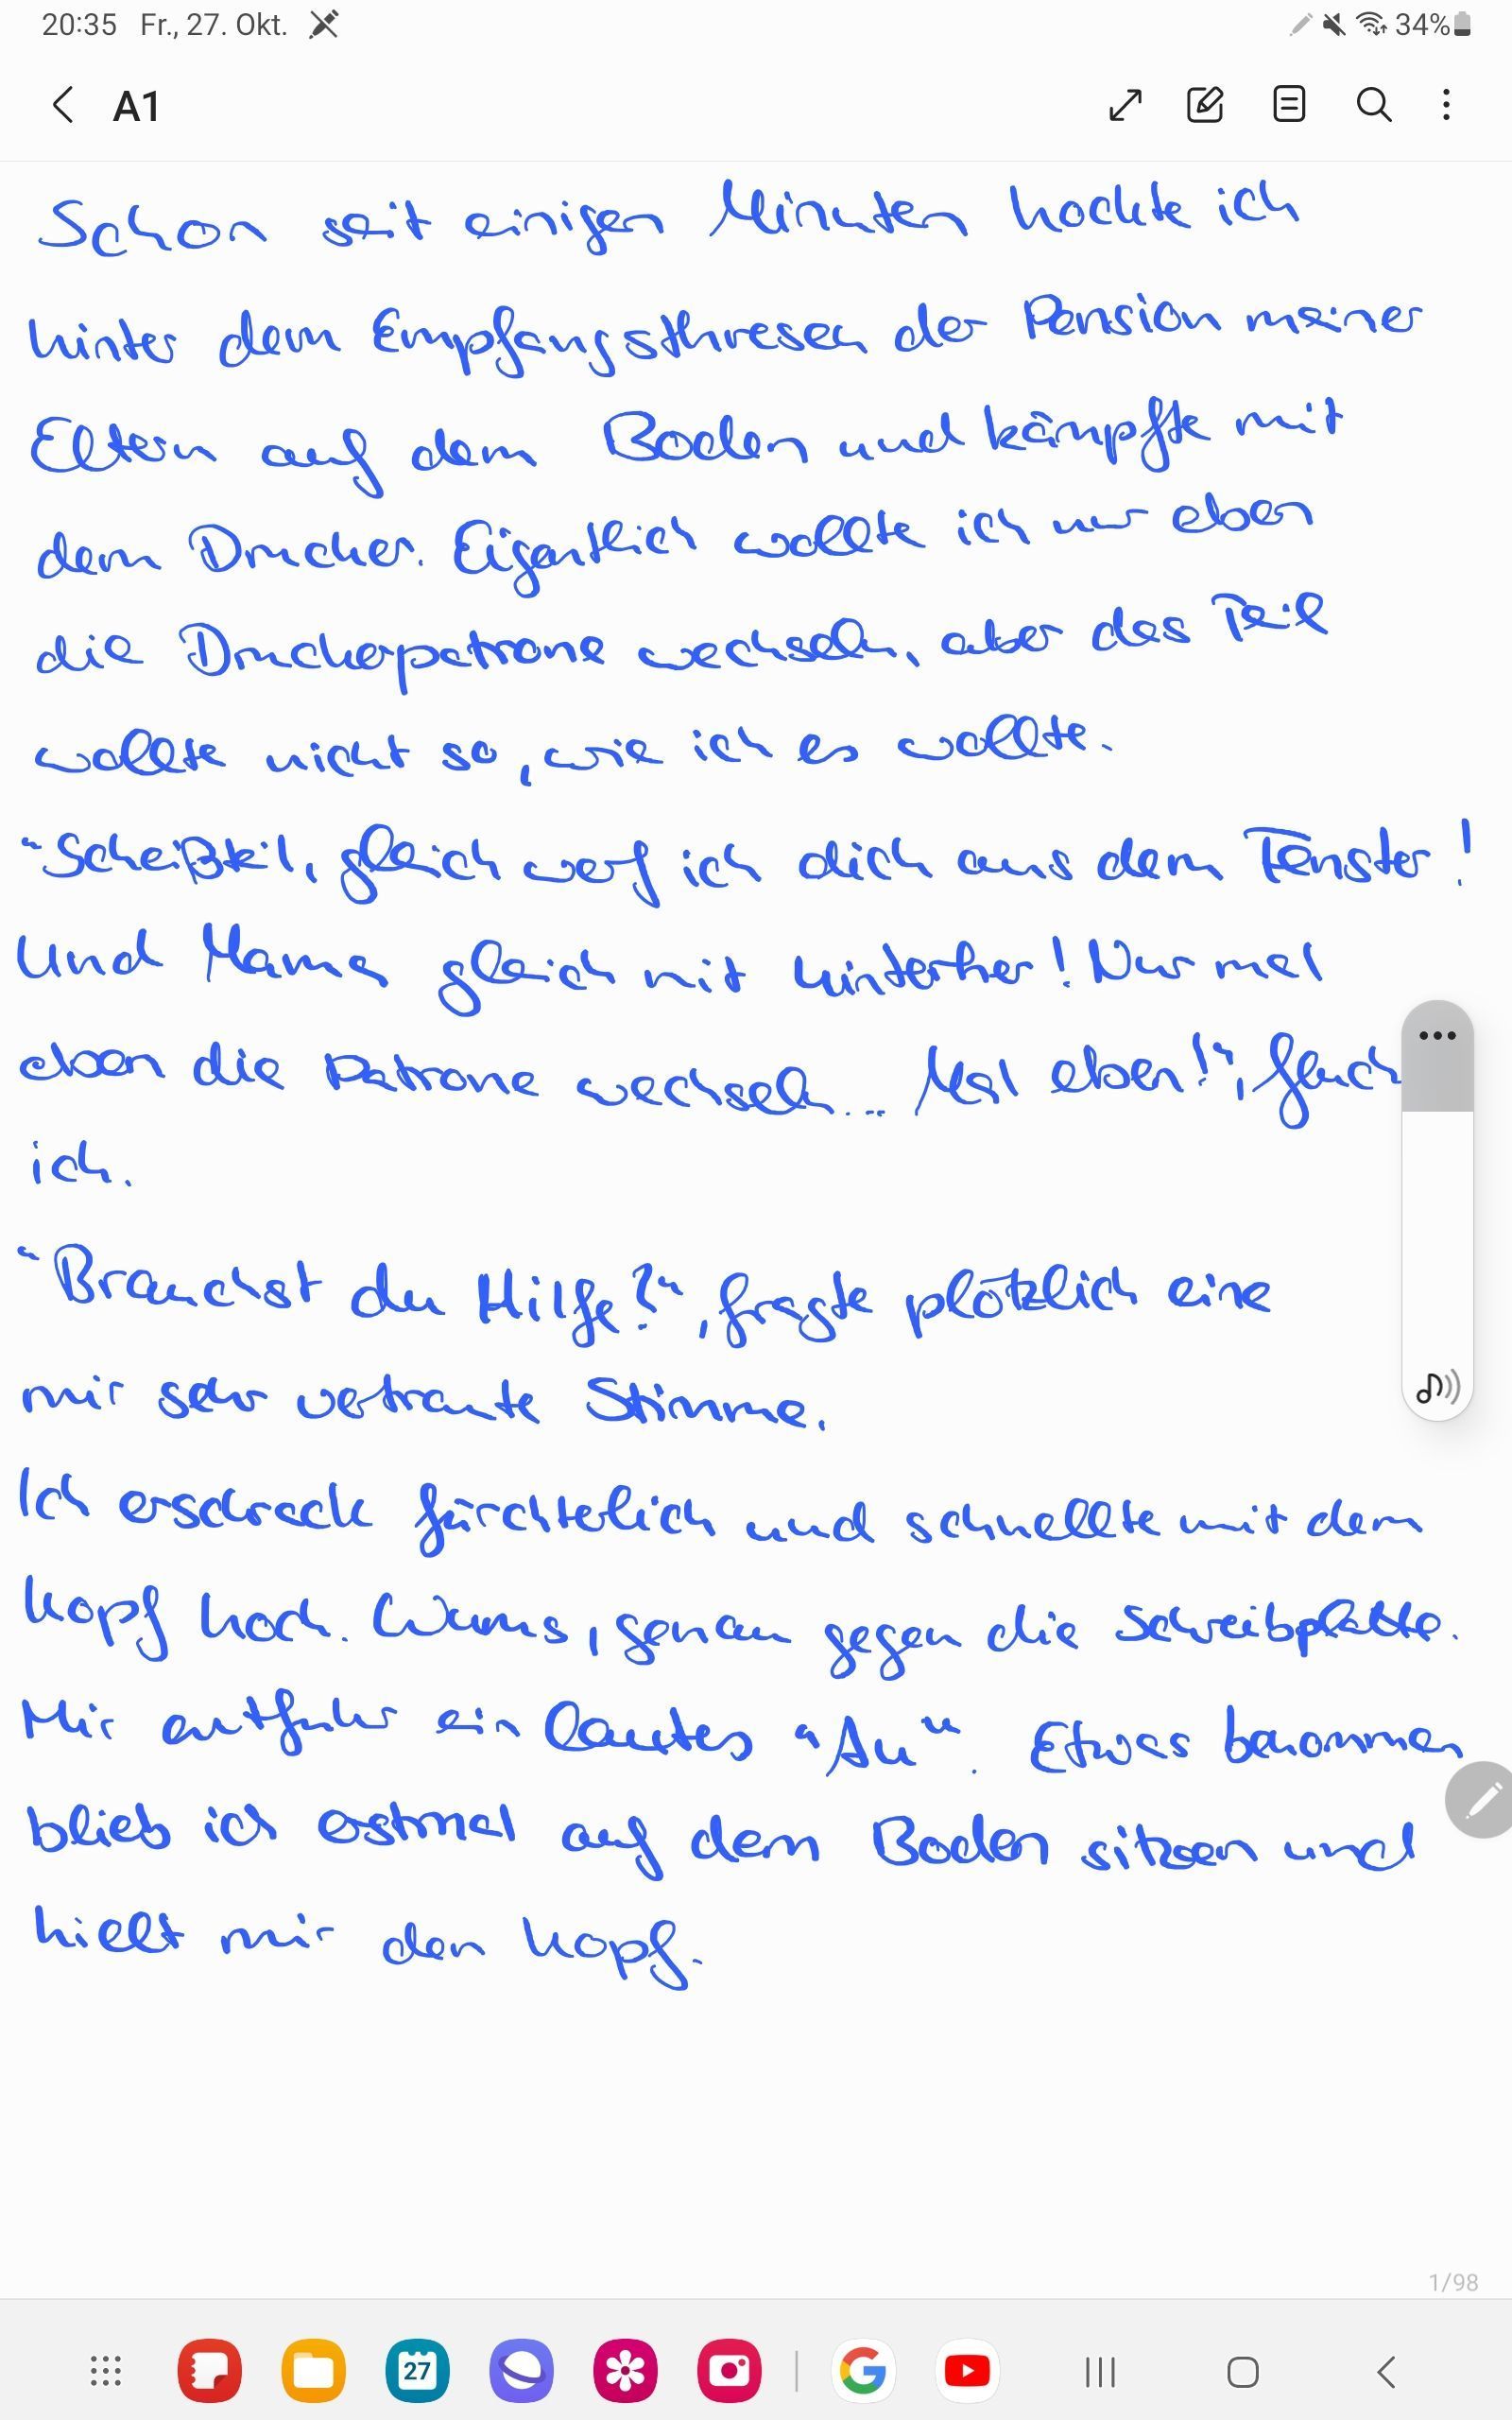 20:35 Fr., 27. Okt. 34%
A1
Schon seit einigen Minuten hockte ich
hinter dem Empfangsthresen der Pension meiner
Eltern auf dem Boden und kämpfte mit
dem Drucker. Eigentlich wollte ich nur eben
die Druckerpatrone wechseln, aber das Teil
wollte nicht so, wie ich es wollte.
"Scheißteil, gleich werf ich dich aus dem Fenster!
Und Mama gleich mit hinterher! Nur mal
eben die Patrone wechseln... Mal eben!",
ich.
"Brauchst du Hilfe?", fragte plötzlich eine
mir sehr vertraute Stimme.
Ich erschrack fürchterlich und schnellte mit dem
Kopf hoch. Wums, genau gegen die Schreibplatte.
Mir entfuhr ein lautes "Au". Etwas benommen
blieb ich erstmal auf dem Boden sitzen und
hielt mir den Kopf.
1/98
27